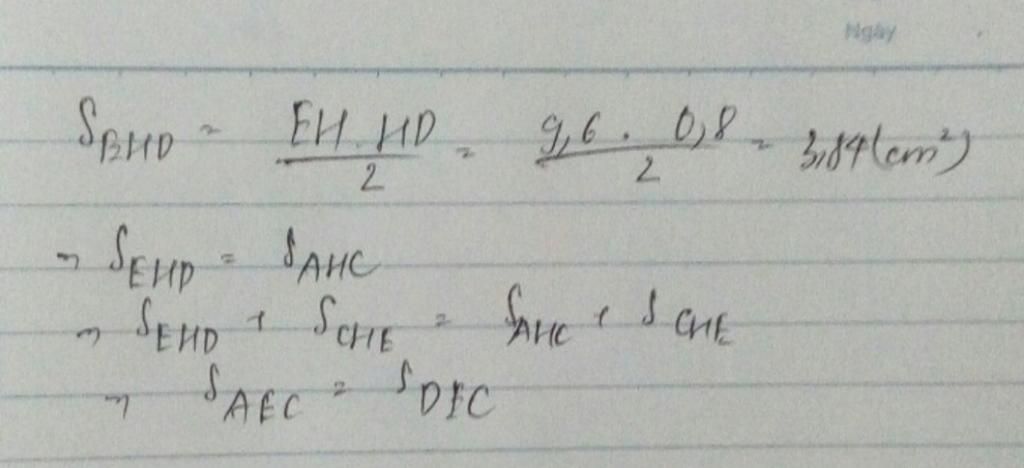 Ngày
S_BHD = EH . HD / 2 = 9,6 . 0,8 / 2 = 3,84 (cm²)
⇒ S_EHD = S_AHC
⇒ S_EHD + S_CHE = S_AHC + S_CHE
⇒ S_AEC = S_DEC